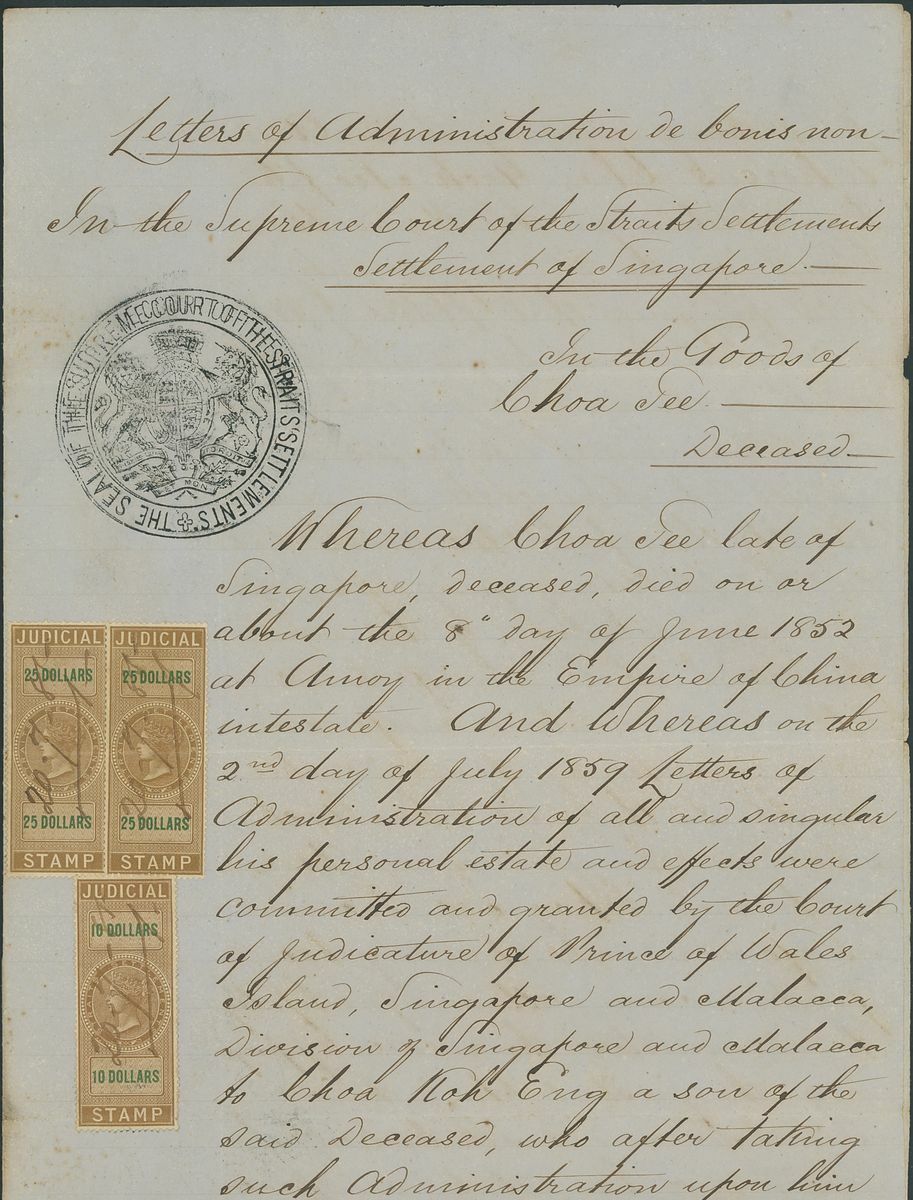 Letters of Administration de bonis non
In the Supreme Court of the Straits Settlements
Settlement of Singapore.
THE SEAL OF THE SUPREME COURT OF THE STRAITS SETTLEMENTS
In the Goods of
Choa Tee
Deceased
Whereas Choa Tee late of
Singapore, deceased, died on or
about the 8" day of June 1852
at Amoy in the Empire of China
intestate. And Whereas on the
2nd day of July 1859 Letters of
Administration of all and singular
his personal estate and effects were
committed and granted by the Court
of Judicature of Prince of Wales
Island, Singapore and Malacca,
Division of Singapore and Malacca
to Choa Koh Eng a son of the
said Deceased, who after taking
such Administration upon him
JUDICIAL
25 DOLLARS
25 DOLLARS
STAMP
JUDICIAL
25 DOLLARS
25 DOLLARS
STAMP
JUDICIAL
10 DOLLARS
10 DOLLARS
STAMP